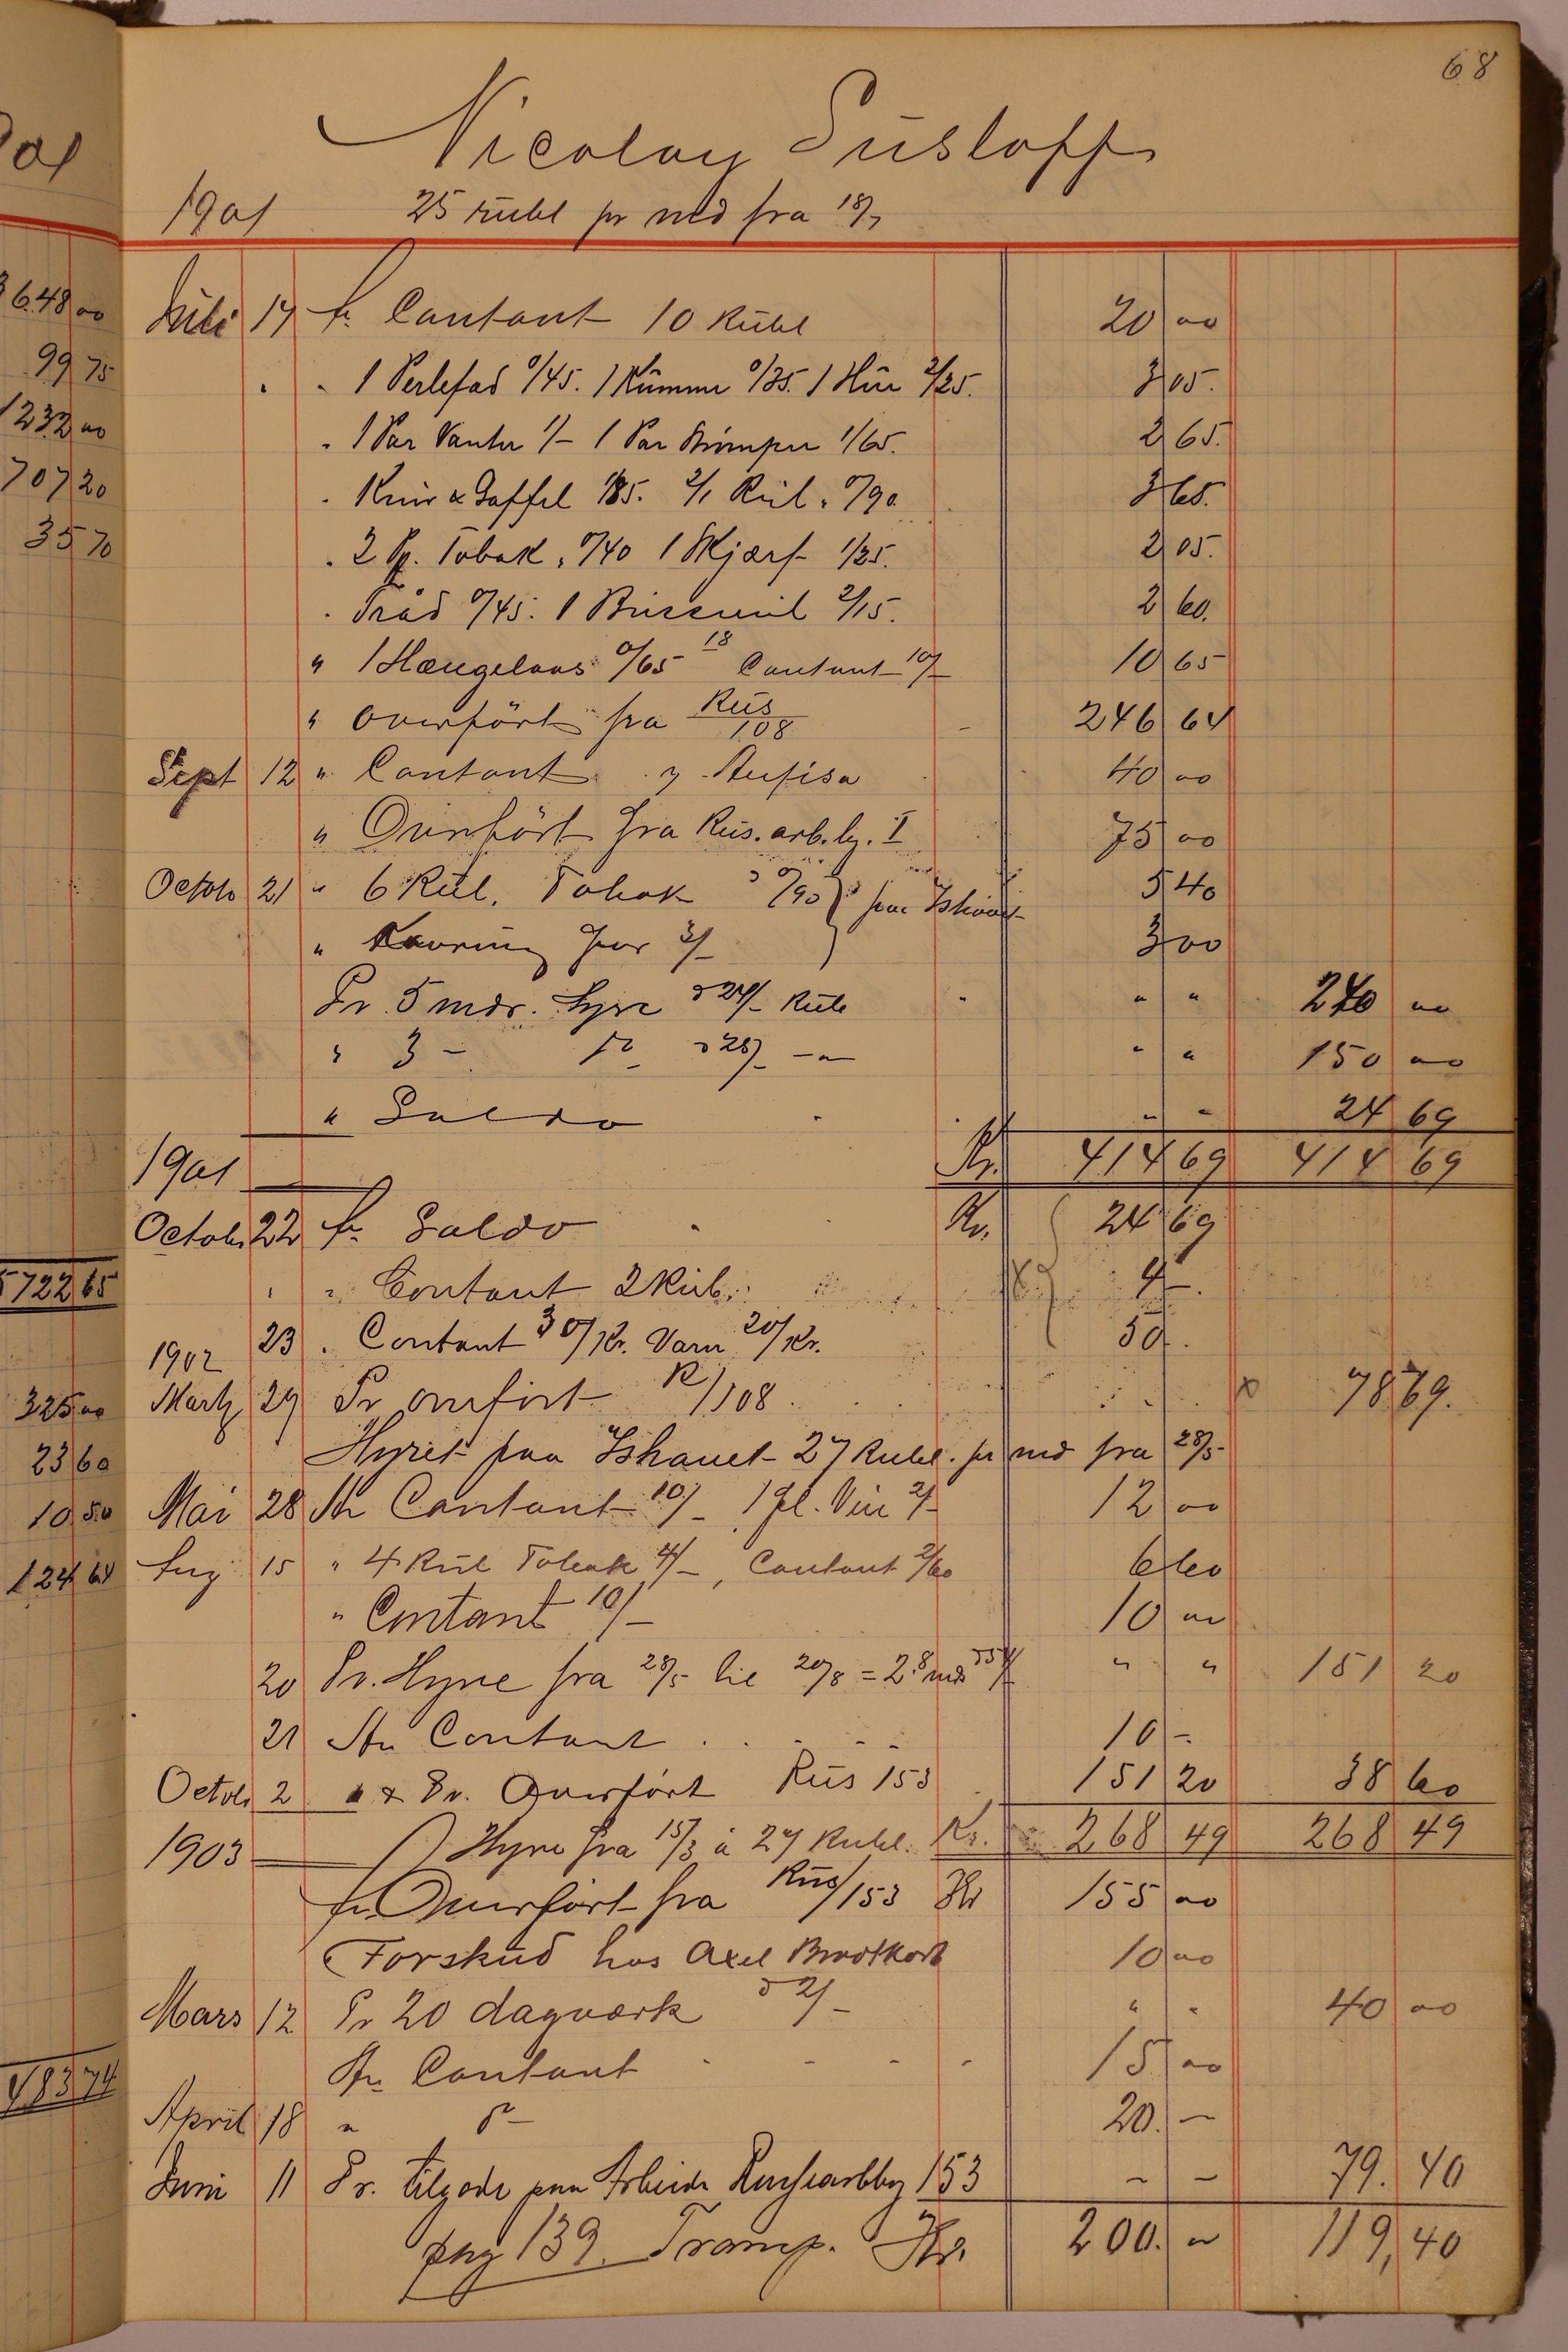 68
Nicolay Susloff
1901 25 rubl pr md fra 18/7
Juli 17 fr Contant 10 Rubl 20 00
" " 1 Perlefad 0/45. 1 Kumme 0/35. 1 Hue 2/25. 3 05.
" 1 Par Vanter 1/- 1 Par Strömper 1/65. 2 65.
" Kniv & Gaffel 1/85. 2/1 Rul. 0/90. 3 65.
" 2 Pg. Tobak, 0/40 1 Skjærf 1/25. 2 05.
" Tråd 0/45. 1 2/15. 2 60.
" 1 Hængelaas 0/65 18 Contant 10/- 10 65
" Overfört fra Rus/108 246 64
Sept 12 " Contant 40 00
" Overfört fra Rus. arb. bg. I 75 00
Octob 21 " 6 Rul. Tobak à 0/90 paa Ishavet 5 40
" Kavring for 3/- 3 00
Pr. 5 mdr. Hyre à 24/- Rub " " 240 00
" 3 - do à 25/- -"- " " 150 00
" Saldo " " 24 69
Kr. 414 69 414 69
1901
Octob. 22 fr Saldo Kr. 24 69
" " Contant 2 Rub. 4 -.
23 " Contant 30/ Kr. Varer 20/ Kr. 50.
1902
Marts 29 Pr overfört R/108 78 69.
Hyret paa Ishavet 27 Rubel. pr md fra 28/5
Mai 28 An Contant 10/- 1 fl. Vin 2/- 12 00
Aug 15 " 4 Rul Tobak 4/-, Contant 2/60 6 60
" Contant 10/- 10 00
20 Pr. Hyre fra 28/5 til 20/8 = 2.8 md à 54/- " " 151 20
21 An Contant 10 -
Octob 2 " & Pr. Overfört Rus 153 151 20 38 60
Hyre fra 15/3 à 27 Rubl. Kr. 268 49 268 49
1903
fr. Overfört fra Rus/153 Kr 155 00
Forskud hos Axel Brodtkorb 10 00
Mars 12 Pr 20 dagværk à 2/- " " 40 00
An Contant 15 00
April 18 " do 20. -
Juni 11 Pr. tilgode paa Arbeide 153 - - 79. 40
pag 139. Transp. Kr. 200. 00 119, 40
01
3648 00
99 75
1232 00
707 20
35 70
5722 65
325 00
23 60
10 50
124 64
483 74